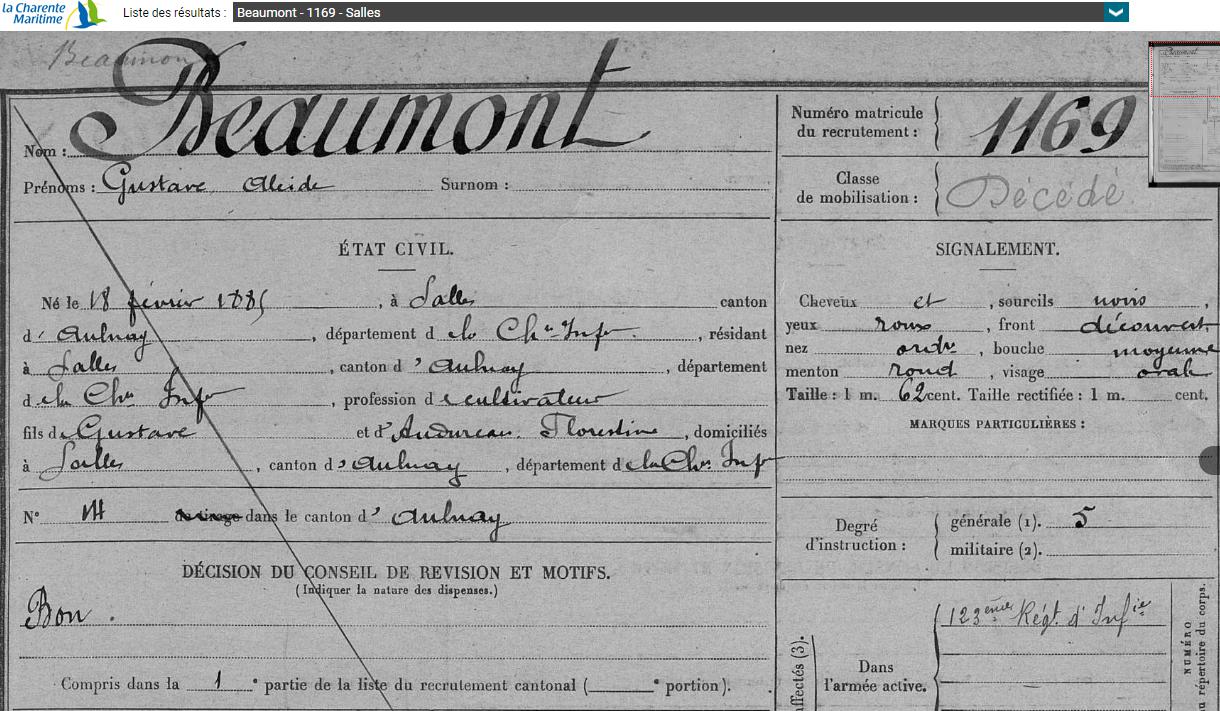 la Charente
Maritime
Liste des résultats : Beaumont - 1169 - Salles
Beaumon
Nom : Beaumont
Prénoms : Gustave Alcide Surnom :
Numéro matricule
du recrutement : 1169
Classe
de mobilisation : Décédé
ÉTAT CIVIL.
Né le 18 février 1885, à Salles canton
d' Aulnay, département d e la Chte Infre, résidant
à Salles, canton d' Aulnay, département
d e la Chte Infre, profession d e cultivateur
fils de Gustave et d' Audureau Florestine, domiciliés
à Salles, canton d' Aulnay, département d e la Chte Infre
N° 14 de tirage dans le canton d' Aulnay
DÉCISION DU CONSEIL DE REVISION ET MOTIFS.
(Indiquer la nature des dispenses.)
Bon.
Compris dans la 1e partie de la liste du recrutement cantonal ( e portion).
SIGNALEMENT.
Cheveux et, sourcils noirs,
yeux roux, front découvert
nez ordre, bouche moyenne
menton rond, visage ovale
Taille : 1 m. 62 cent. Taille rectifiée : 1 m. cent.
MARQUES PARTICULIÈRES :
Degré
d'instruction : générale (1). 5
militaire (2).
affectés (3).
Dans
l'armée active.
123ème Régt d'Infie
NUMÉRO
au répertoire du corps.